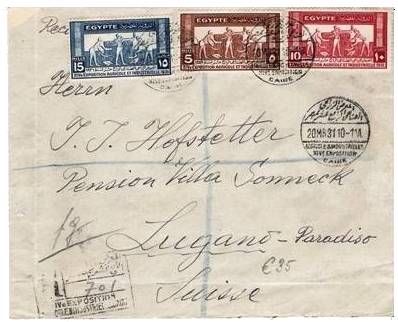 Rec
EGYPTE
15
١٥
EXPOSITION AGRICOLE ET INDUSTRIELLE 1931
EGYPTE
5
٥
EXPOSITION AGRICOLE ET INDUSTRIELLE 1931
EGYPTE
10
١٠
EXPOSITION AGRICOLE ET INDUSTRIELLE 1931
CAIRE
XIVE EXPOSITION
CAIRE
Herrn
J. J. Hofstetter
20 MR 31 10-11A
AGRICOLE & INDUSTRIELLE
XIVE EXPOSITION
CAIRE
Pension Villa Sonneck
Lugano-Paradiso
€35
701
IVe EXPOSITION
Suisse